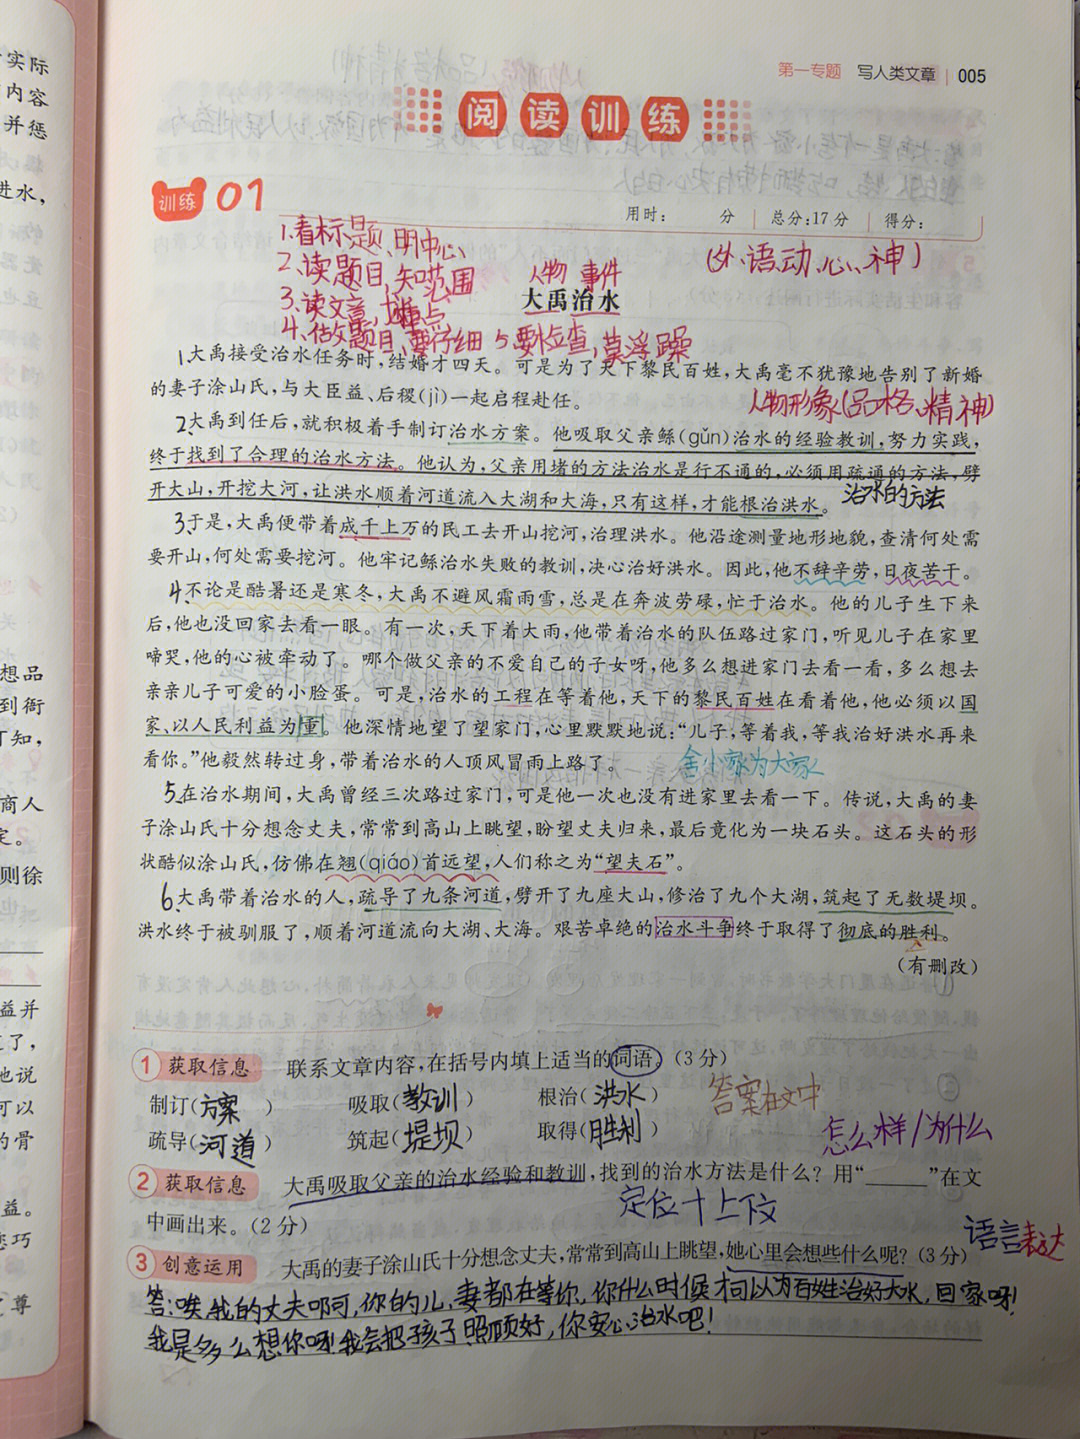 第一专题 写人类文章 005
阅读训练
训练 01
用时： 分 总分:17分 得分：
1.看标题、明中心
2、读题目,知范围
3、读文章,
4、 题目、要仔细 5要检查,莫浮躁
(外、语、动、心、神)
人物 事件
大禹治水
1、大禹接受治水任务时,结婚才四天。可是为了天下黎民百姓,大禹毫不犹豫地告别了新婚
的妻子涂山氏,与大臣益、后稷(jì)一起启程赴任。
人物形象(品格、精神)
2、大禹到任后,就积极着手制订治水方案。他吸取父亲鲧(gǔn)治水的经验教训,努力实践,
终于找到了合理的治水方法。他认为,父亲用堵的方法治水是行不通的,必须用疏通的方法,劈
开大山,开挖大河,让洪水顺着河道流入大湖和大海,只有这样,才能根治洪水。
治水的方法
3、于是,大禹便带着成千上万的民工去开山挖河,治理洪水。他沿途测量地形地貌,查清何处需
要开山,何处需要挖河。他牢记鲧治水失败的教训,决心治好洪水。因此,他不辞辛劳,日夜苦干。
4、不论是酷暑还是寒冬,大禹不避风霜雨雪,总是在奔波劳碌,忙于治水。他的儿子生下来
后,他也没回家去看一眼。有一次,天下着大雨,他带着治水的队伍路过家门,听见儿子在家里
啼哭,他的心被牵动了。哪个做父亲的不爱自己的子女呀,他多么想进家门去看一看,多么想去
亲亲儿子可爱的小脸蛋。可是,治水的工程在等着他,天下的黎民百姓在看着他,他必须以国
家、以人民利益为重。他深情地望了望家门,心里默默地说:“儿子,等着我,等我治好洪水再来
看你。”他毅然转过身,带着治水的人顶风冒雨上路了。
舍小家为大家
5、在治水期间,大禹曾经三次路过家门,可是他一次也没有进家里去看一下。传说,大禹的妻
子涂山氏十分想念丈夫,常常到高山上眺望,盼望丈夫归来,最后竟化为一块石头。这石头的形
状酷似涂山氏,仿佛在翘(qiáo)首远望,人们称之为“望夫石”。
6、大禹带着治水的人,疏导了九条河道,劈开了九座大山,修治了九个大湖,筑起了无数堤坝。
洪水终于被驯服了,顺着河道流向大湖、大海。艰苦卓绝的治水斗争终于取得了彻底的胜利。
(有删改)
1 获取信息 联系文章内容,在括号内填上适当的词语。(3分)
制订(方案) 吸取(教训) 根治(洪水) 答案在文中
疏导(河道) 筑起(堤坝) 取得(胜利) 怎么样/为什么
2 获取信息 大禹吸取父亲的治水经验和教训,找到的治水方法是什么?用“______”在文
中画出来。(2分) 定位十上下文
语言表达
3 创意运用 大禹的妻子涂山氏十分想念丈夫,常常到高山上眺望,她心里会想些什么呢?(3分)
答:唉,我的丈夫啊,你的儿、妻都在等你,你什么时候才可以为百姓治好大水,回家呀!
我是多么想你呀!我会把孩子照顾好,你安心治水吧!